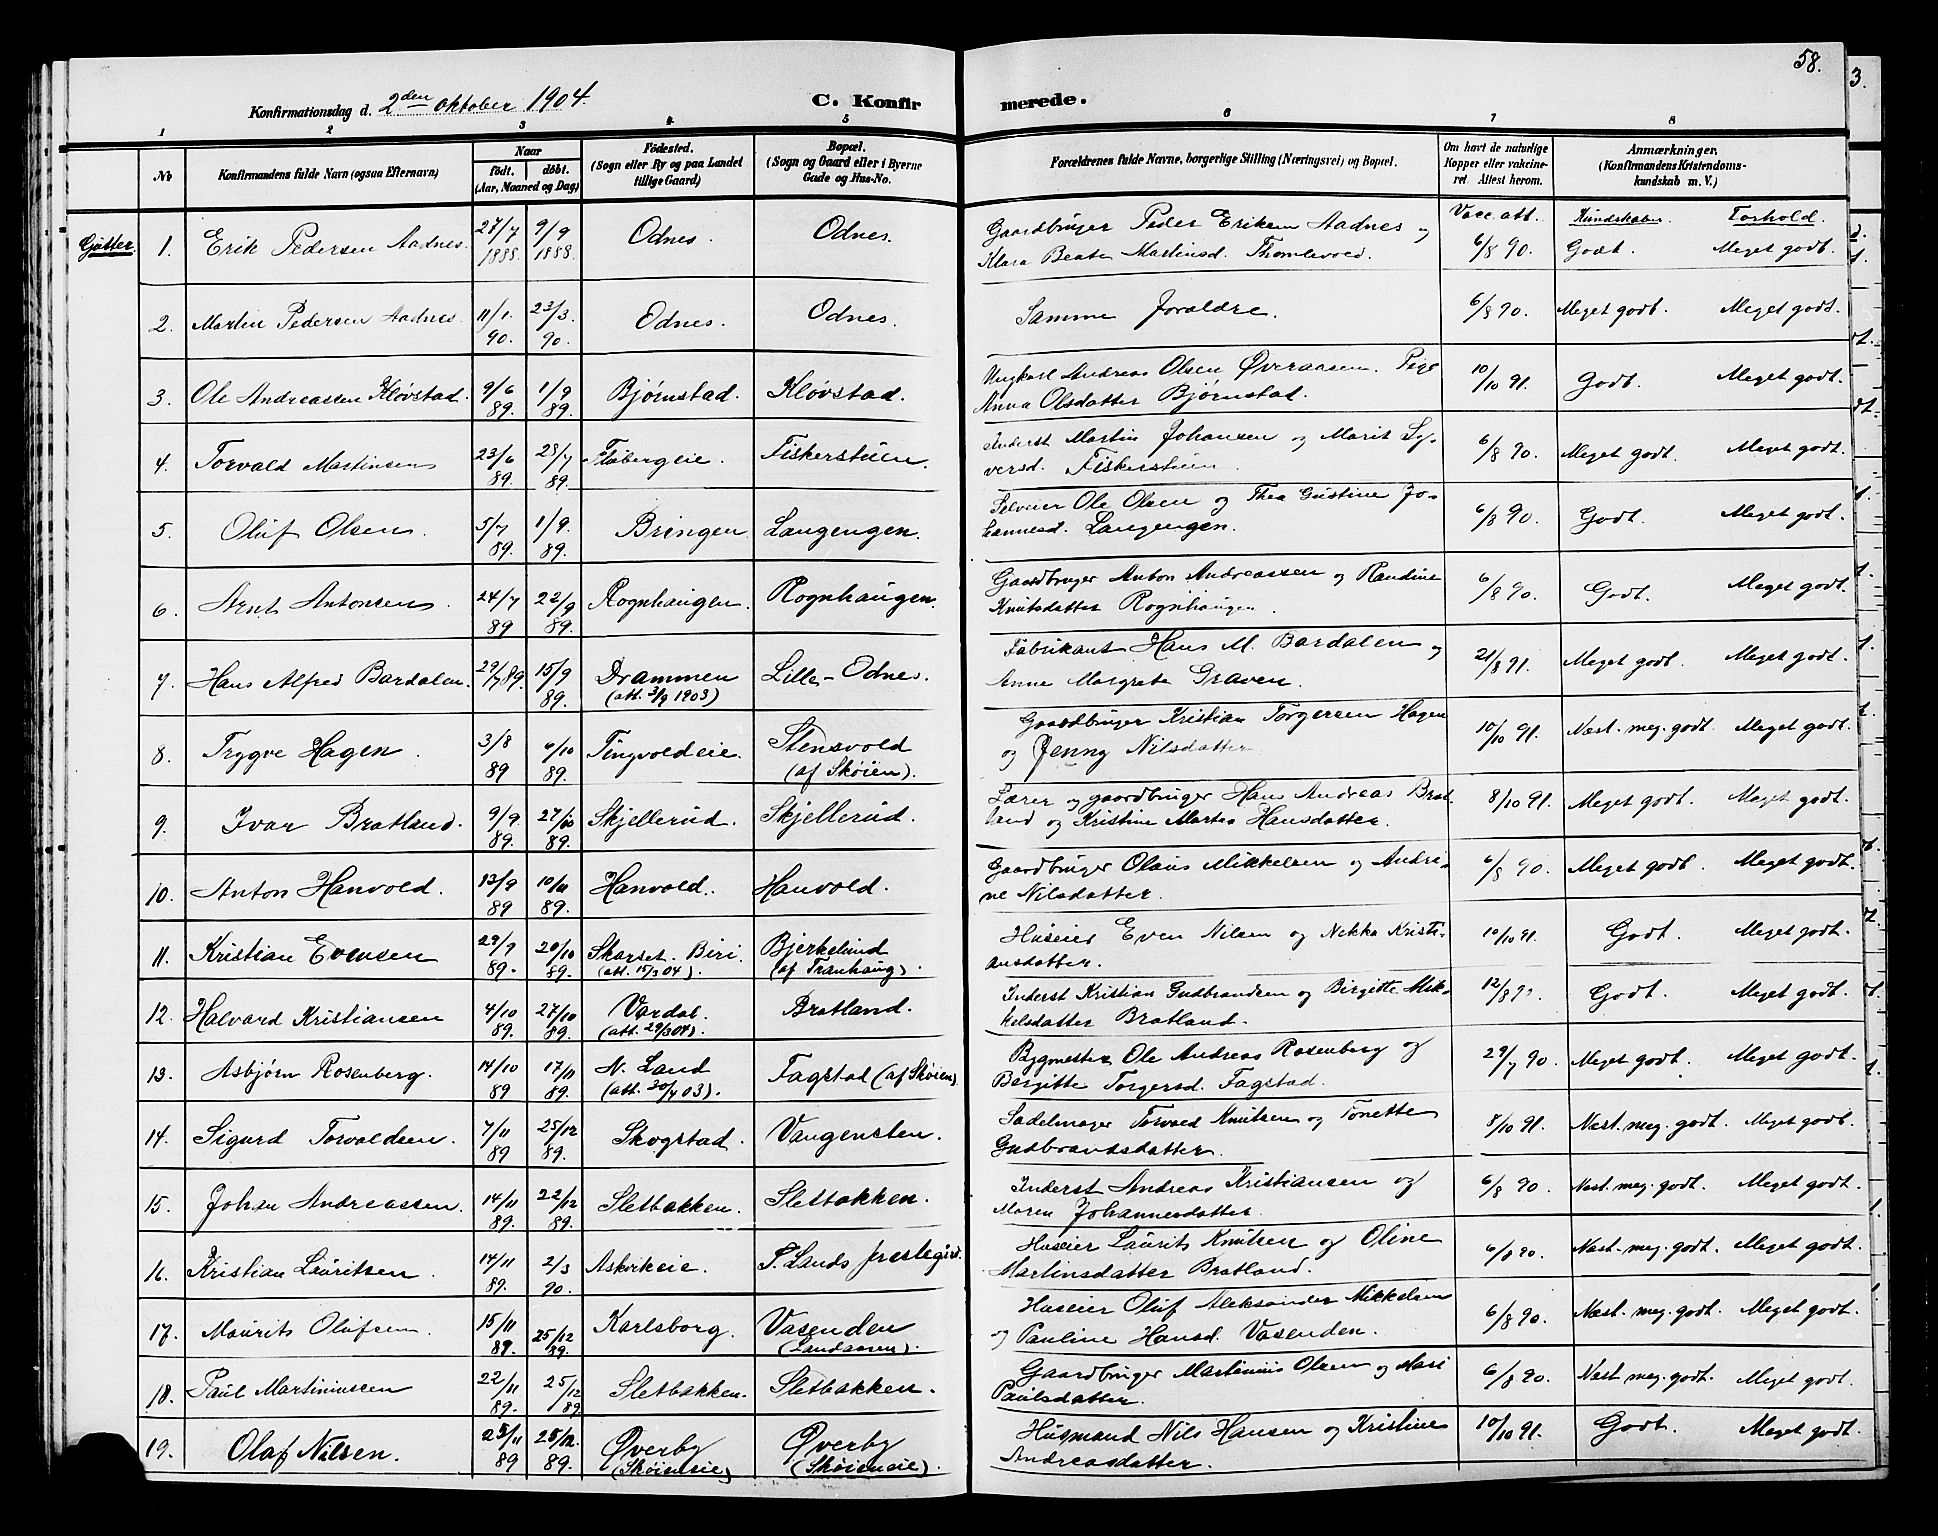 58.
Konfirmationsdag d. 2den oktober 1904.
C. Konfirmerede.
1 2 3 4 5 6 7 8
No
Konfirmandens fulde Navn (ogsaa Efternavn)
Naar
født. døbt.
(Aar, Maaned og Dag)
Fødested.
(Sogn eller By og paa Landet
tillige Gaard)
Bopæl.
(Sogn og Gaard eller i Byerne
Gade og Hus-No.
Forældrenes fulde Navne, borgerlige Stilling (Næringsvei) og Bopæl.
Om havt de naturlige
Kopper eller vakcineret. Attest herom.
Anmærkninger,
(Konfirmandens Kristendomskundskab m. V.)
Gutter. 1. Erik Pedersen Aadnes. 27/7 1888. 9/9 1888. Odnes. Odnes. Gaardbruger Peder Eriksen Aadnes og Vacc. att. Kundskaber Forhold.
Klara Beate Martinsd. Thomlevold. 6/8 90. Godt. Meget godt.
2. Martin Pedersen Aadnes. 11/1. 90. 23/3. 90. Odnes. Odnes. Samme Forældre. 6/8 90. Meget godt. Meget godt.
3. Ole Andreassen Kløvstad. 9/6 89. 1/9 89. Bjørnstad. Kløvstad. Ungkarl Andreas Olsen Øveraasen. Pige
Anna Olsdatter Bjørnstad. 10/10 91. Godt. Meget godt.
4. Torvald Martinsen 23/6 89. 28/7 89. Fløbergeie. Fiskerstuen. Inderst Martin Johansen og Marit Syversd. Fiskerstuen. 6/8 90. Meget godt. Meget godt.
5. Oluf Olsen. 5/7 89. 1/9. 89. Bringen Langengen. Selveier Ole Olsen og Thea Gustine Johannesd. Langengen. 6/8 90. Godt. Meget godt.
6. Arnt Antonsen. 24/7 89 22/9 89. Rognhaugen. Rognhaugen. Gaardbruger Anton Andreassen og Randine
Knutsdatter Rognhaugen. 6/8 90. Godt. Meget godt.
7. Hans Alfred Bardalen. 29/7 89. 15/9 89. Drammen (att. 3/9 1903) Lille-Odnes. Fabrikant Hans M. Bardalen og
Anne Margrete Graven. 21/8 91. Meget godt. Meget godt.
8. Trygve Hagen. 3/8 89 6/10 89. Tingvoldeie. Stensvold (af Skøien). Gaardbruger Kristian Torgersen Hagen
og Jenny Nilsdatter 10/10 91. Næst. meg. godt. Meget godt.
9. Ivar Bratland. 9/9. 89. 27/10 89. Skjellerud. Skjellerud. Lærer og gaardbruger Hans Andreas Bratland og Kristine Martea Hansdatter. 8/10 91. Meget godt. Meget godt.
10. Anton Hanvold. 13/9 89 10/11 89. Hanvold. Hanvold. Gaardbruger Olaus Mikkelsen og Andrine Nilsdatter. 6/8 90. Meget godt. Meget godt.
11. Kristian Evensen 29/9 89. 20/10 89. Skarset. Biri. (att. 15/3 04). Bjerkelund (af Tranhaug). Huseier Even Nilsen og Nekka Kristiansdatter. 10/10 91. Godt. Meget godt.
12. Halvard Kristiansen 4/10 89. 27/10 89. Vardal. (att. 29/3 04). Bratland. Inderst Kristian Gudbrandsen og Birgitte Mikkelsdatter Bratland. 12/8 9 Godt. Meget godt.
13. Asbjørn Rosenberg. 14/10 89 17/11 89. N. Land (att. 30/4 03). Fagstad (af Skøien). Bygmester Ole Andreas Rosenberg og
Birgitte Torgersd. Fagstad. 29/7 90. Meget godt. Meget godt.
14. Sigurd Torvaldsen. 7/11 89 25/12 89. Skogstad. Vangensten. Sadelmager Torvald Knutsen og Tonette
Gudbrandsdatter. 8/10 91. Næst. meg. godt. Meget godt.
15. Johan Andreassen. 14/11 89. 22/12 89. Sletbakken. Sletbakken. Inderst Andreas Kristiansen og
Maren Johannesdatter. 6/8 90. Næst. meg. godt. Meget godt.
16. Kristian Lauritsen. 14/11 89. 2/3 90. Askvikeie. S. Lands prestegård. Huseier Laurits Knutsen og Oline
Martinsdatter Bratland. 6/8 90. Næst. meg. godt. Meget godt.
17. Maurits Olufsen. 15/11 89. 25/12 89. Karlsborg. Vasenden (Landaasen). Huseier Oluf Aleksander Mikkelsen
og Pauline Hansd. Vasenden. 6/8 90. Næst. meg. godt. Meget godt.
18. Paul Martiniussen 22/11 89. 25/12 89 Sletbakken. Sletbakken. Gaardbruger Martinius Olsen og Mari
Paulsdatter. 6/8 90. Næst. meg. godt. Meget godt.
19. Olaf Nilsen. 23/11 89 25/12. 89. Øverby (Skøieneie) Øverby (Skøieneie). Husmand Nils Hansen og Kristine
Andreasdatter. 10/10 91. Godt. Meget godt.